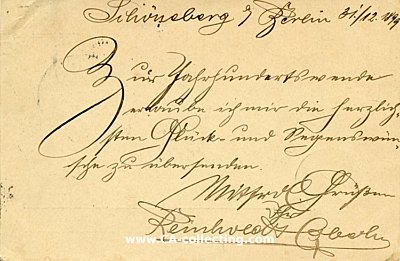 Schöneberg b/ Berlin 31/12. 1899
Zur Jahrhundertswende
erlaube ich mir die herzlich-
sten Glück- und Segenswün-
sche zu übersenden.
Mit Grüßen
Ihr
Reinhold
www.LA-collecting.com